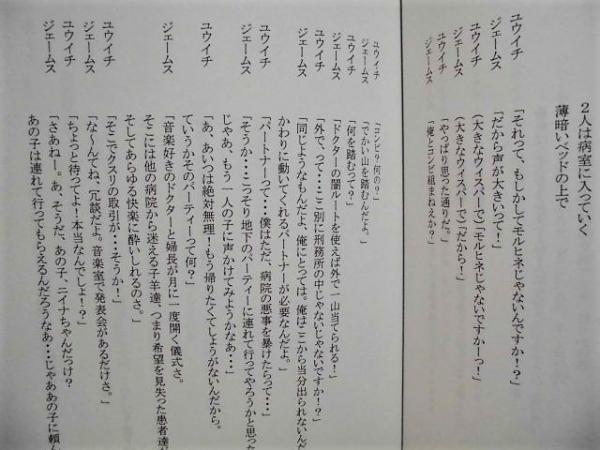 2人は病室に入っていく
薄暗いベッドの上で
ユウイチ 「それって、もしかしてモルヒネじゃないんですか!?」
ジェームス 「だから声が大きいって!」
ユウイチ (大きなウィスパーで)「モルヒネじゃないですかーっ!」
ジェームス (大きなウィスパーで)「だから!」
ユウイチ 「やっぱり思った通りだ。」
ジェームス 「俺とコンビ組まねえか?」
ユウイチ 「コンビ?何の?」
ジェームス 「でかい山を踏むんだよ。」
ユウイチ 「何を踏むって?」
ジェームス 「ドクターの闇ルートを使えば外で一山当てられる!」
ユウイチ 「外で、って・・・ここ別に刑務所の中じゃないじゃないですか!?」
ジェームス 「同じようなもんだよ、俺にとっては。俺はここから当分出られないんだ
かわりに動いてくれるパートナーが必要なんだよ。」
ユウイチ 「パートナーって・・・僕はただ、病院の悪事を暴けたらって・・・」
ジェームス 「そうか・・・こっそり地下のパーティーに連れて行ってやろうかと思った
じゃあ、もう一人の子に声かけてみようかなあ・・・」
ユウイチ 「あ、あいつは絶対無理!もう帰りたくてしょうがないんだから。
ていうかそのパーティーって何?」
ジェームス 「音楽好きのドクターと婦長が月に一度開く儀式さ。
そこには他の病院から迷える子羊達、つまり希望を見失った患者達が
そしてあらゆる快楽に酔いしれるのさ。」
ユウイチ 「そこでクスリの取引が・・・そうか!」
ジェームス 「な〜んてね。冗談だよ。音楽室で発表会があるだけさ。」
ユウイチ 「ちょっと待ってよ!本当なんでしょ!?」
ジェームス 「さあねー。あ、そうだ、あの子、ニイナちゃんだっけ?
あの子は連れて行ってもらえるんだろうなあ・・・じゃああの子に頼ん